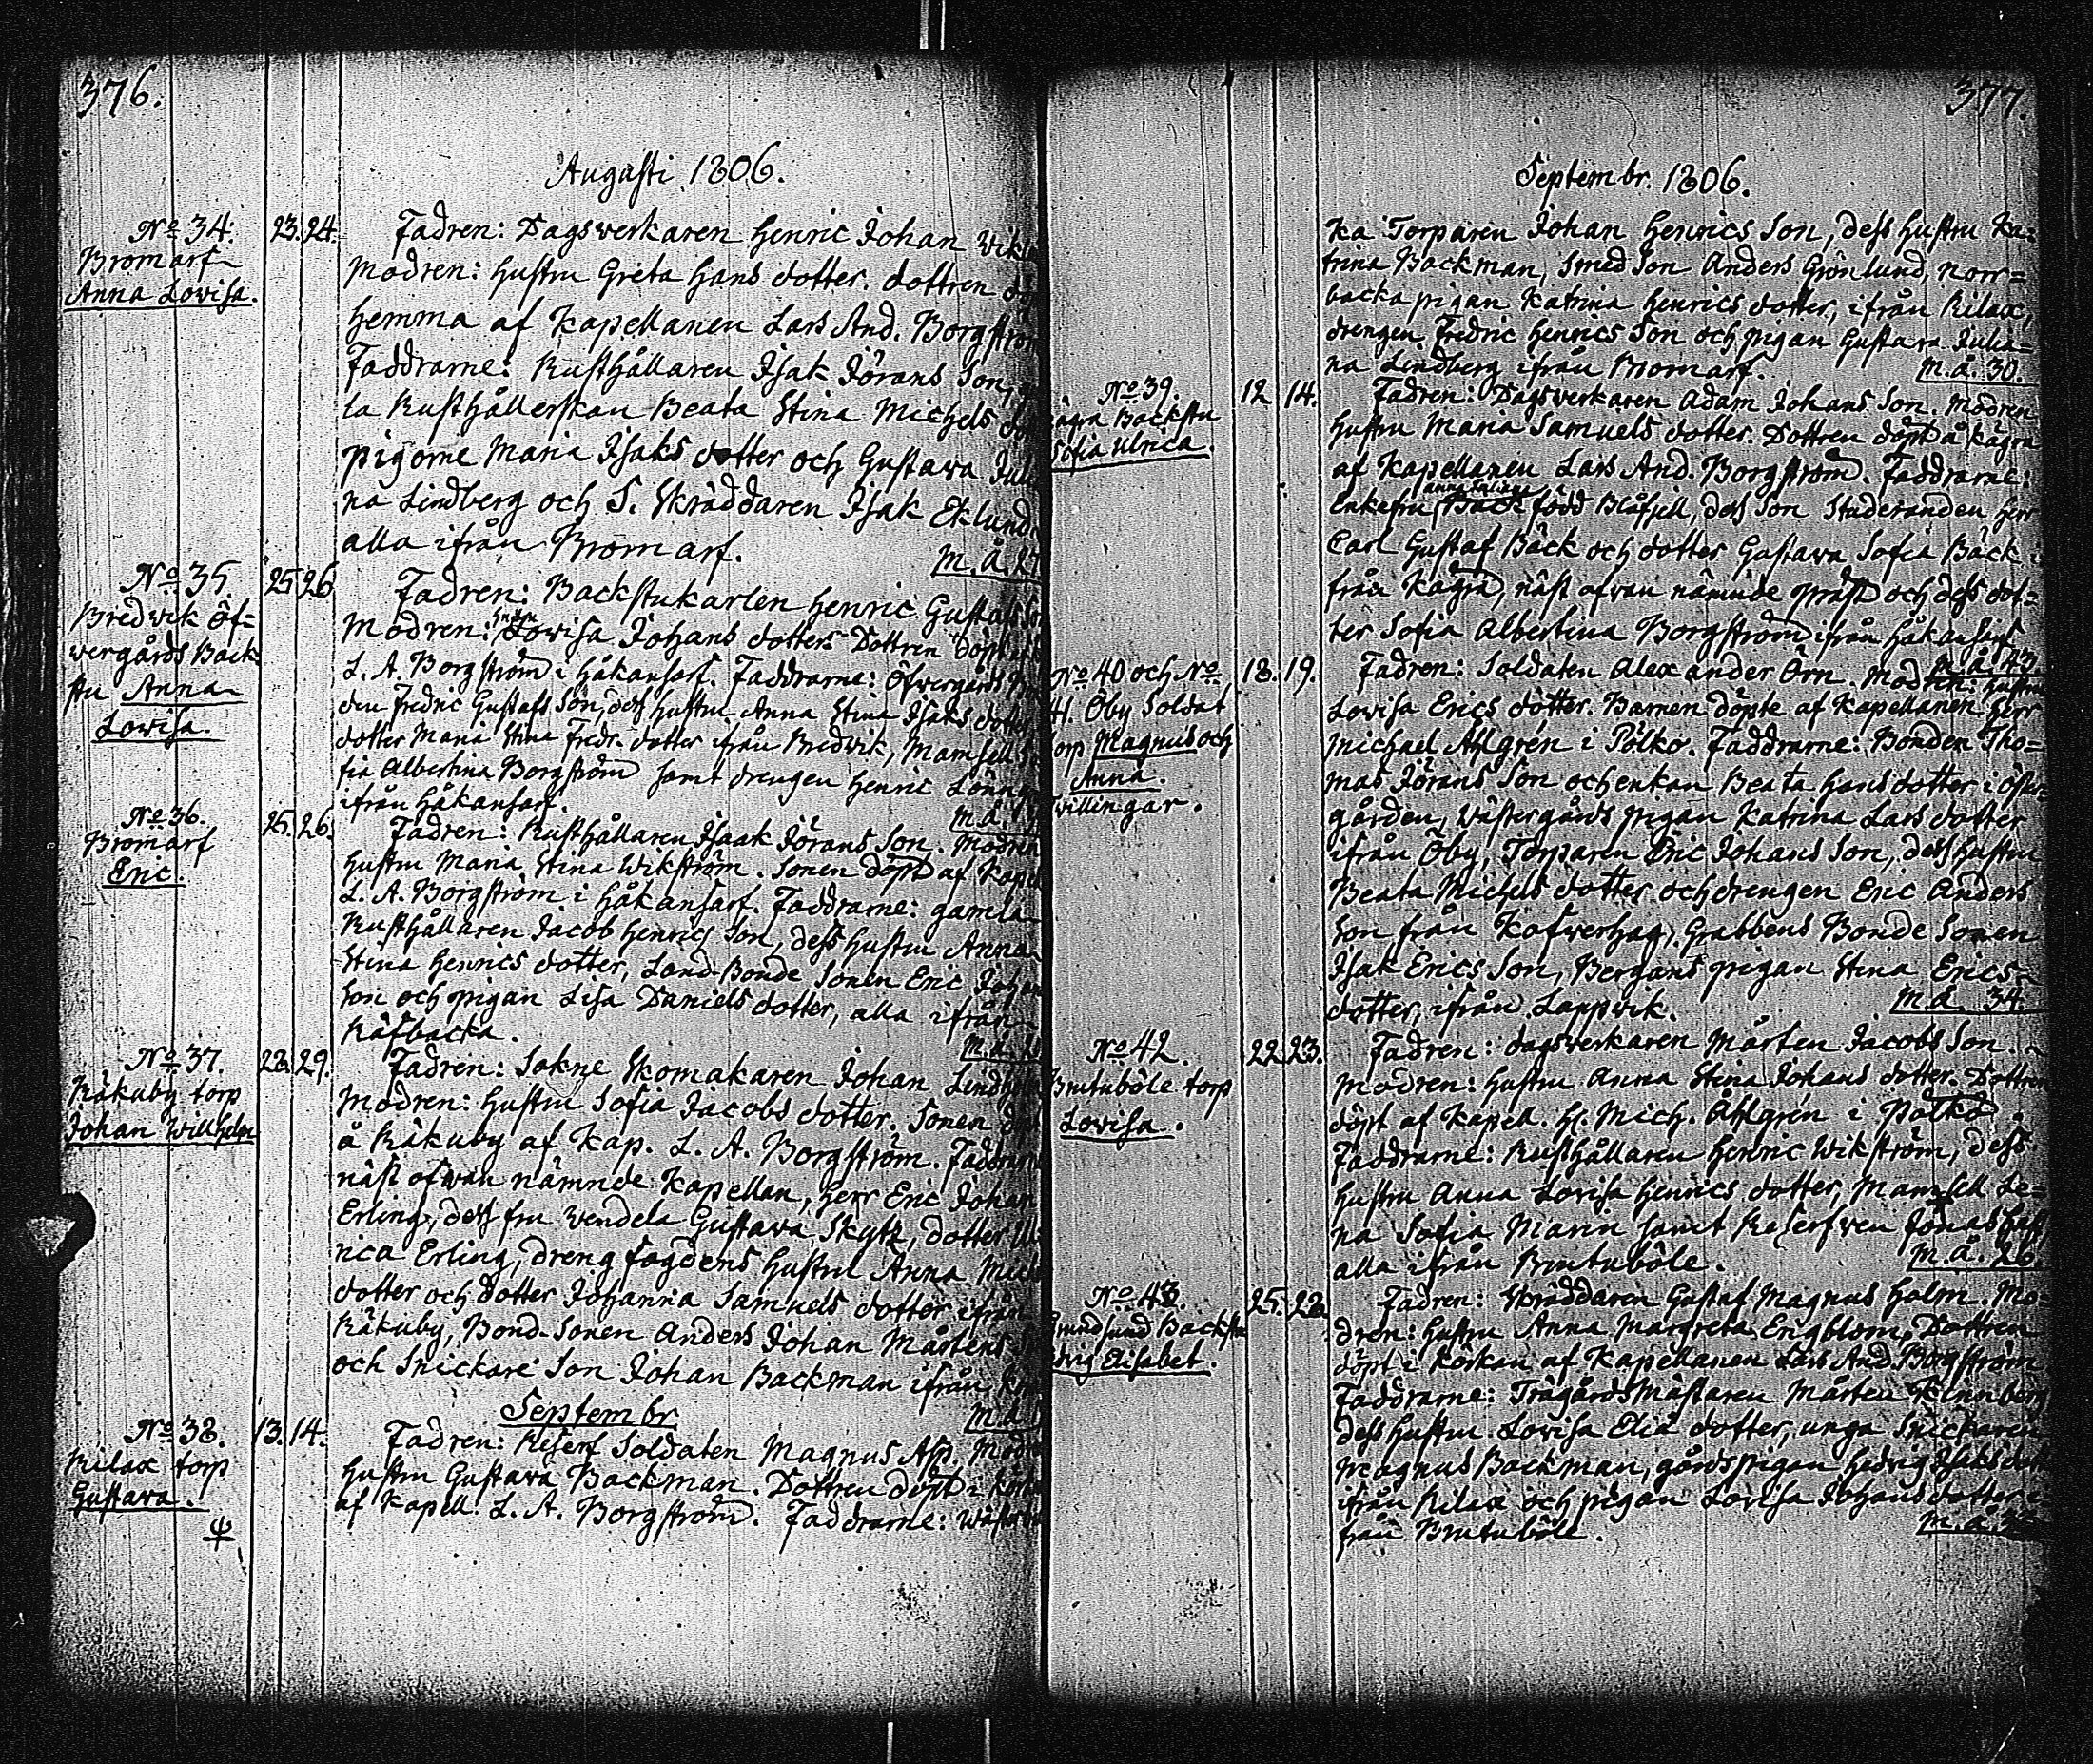 376.
Augusti 1806.
No 34. 23. 24. Fadren: Dagsverkaren Henric Johan
Bromarf Modren: hustru Greta Hans dotter. dottren
Anna Lovisa. hemma af Kapellanen Lars And. Borgström
Faddrarne: Rusthållaren Isak Jörans Son,
la Rusthållerskan Beata Stina Michels
pigorne Maria Isaks dotter och Gustava
na Lindberg och S. Skräddaren Isak Eklund
alla ifrån Bromarf. M. å. 27
No 35. 25 26 Fadren: Backstukarlen Henric Gustafs
Bredvik Öf= Modren: hustru Lovisa Johans dotter. Dottren döpt
wergårds Back L. A. Borgström i Håkansarf. Faddrarne: Öfvergårds
stu Anna den Fredric Gustafs Son, dess hustru Anna Stina Isaks dotter
Lovisa. dotter Maria Stina Fredr. dotter ifrån Bredvik, Mamsell
fia Albertina Borgström samt drengen Henric
ifrån Håkansarf. M. å.
No 36. 25. 26. Fadren: Rusthållaren Isaak Jörans Son. Modren
Bromarf hustru Maria Stina Wikström. Sonen döpt af Kapell
Eric. L. A. Borgström i Håkansarf. Faddrarne: gamla
Rusthållaren Jacob Henrics Son, dess hustru Anna
Stina Henrics dotter, Land Bonde Sonen Eric
Son och pigan Lisa Daniels dotter, alla ifrån
Räfbacka. M. å.
No 37. 28. 29. Fadren: Sokne Skomakaren Johan
Råkuby torp Modren: hustru Sofia Jacobs dotter. Sonen
Johan Willhelm å Råkuby af Kap. L. A. Borgström.
näst ofwan nämnde Kapellan, Herr Eric Johan
Erling, dess fru Vendela Gustava Skytz, dotter
rica Erling, dreng fogdens hustru Anna
dotter och dotter Johanna Samuels dotter ifrån
Råkuby, Bond-Sonen Anders Johan Mårtens
och Snickare Son Johan Backman ifrån
Septembr M. å.
No 38. 13. 14. Fadren: Reserf Soldaten Magnus Asp.
Rilax torp hustru Gustava Backman. Dottren döpt i
Gustava. af Kapell. L. A. Borgström. Faddrarne:
377.
Septembr. 1806.
ka Torparen Johan Henrics Son, dess hustru Ka=
trina Backman, Smed Son Anders Grönlund, Norr=
backa pigan Katrina Henrics dotter, ifrån Rilax,
drengen Fredric Henrics Son och pigan Gustava Julia=
na Lindberg ifrån Bromarf. M. å. 30.
No 39. 12 14. Fadren: Dagsverkaren Adam Johans Son. Modren
Backstu hustru Maria Samuels dotter. Dottren döpt å Kågra
Sofia Ulrica. af Kapellanen Lars And. Borgström. Faddrarne:
Enkefru Bäck född Blåfjell, dess Son Studeranden Herr
Carl Gustaf Bäck och dotter Gustava Sofia Bäck i
från Kågra, näst ofvan nämnde präst och dess dot=
ter Sofia Albertina Borgström ifrån Håkansarf.
M. å. 43
No 40 och No 18. 19. Fadren: Soldaten Alexander Örn. Modren: hustru
41. Öby Soldat Lovisa Erics dotter. Barnen döpte af Kapellanen Herr
torp Magnus och Michael Ahlgrén i Pölkö. Faddrarne: Bonden Tho=
Anna. mas Jörans Son och enkan Beata Hans dotter i öfver=
Tvillingar. gården, Wästergårds pigan Katrina Lars dotter
ifrån Öby, Torparen Eric Johans Son, dess hustru
Beata Michels dotter och drengen Eric Anders
Son från Kofwerhag, Grabbens Bonde Sonen
Isak Erics Son, Bergans pigan Stina Erics=
dotter, ifrån Lappvik. M. å. 34.
No 42. 22 23. Fadren: dagsverkaren Mårten Jacobs Son.
Brutuböle torp Modren: hustru Anna Stina Johans dotter. Dottren
Lovisa. döpt af Kapell. H. Mich. Åhlgrén i Pölkö.
Faddrarne: Rusthållaren Henric Wikström, dess
hustru Anna Lovisa Henrics dotter, Mamsell Le=
na Sofia Marin samt Reserfven Jonas
alla ifrån Brutuböle. M. å. 26.
No 43. 25. 28. Fadren: Skräddaren Gustaf Magnus Holm. Mo=
Backstu dren: hustru Anna Margreta Engblom. Dottren
Elisabet. döpt i Körkan af Kapellanen Lars And. Borgström
Faddrarne: Trägårds Mästaren Mårten
dess hustru Lovisa Elia dotter, unga Snickaren
Magnus Backman, gårds pigan Hedvig Isaks
ifrån Rilax och pigan Lovisa Johans dotter i=
från Brutuböle. M. å.